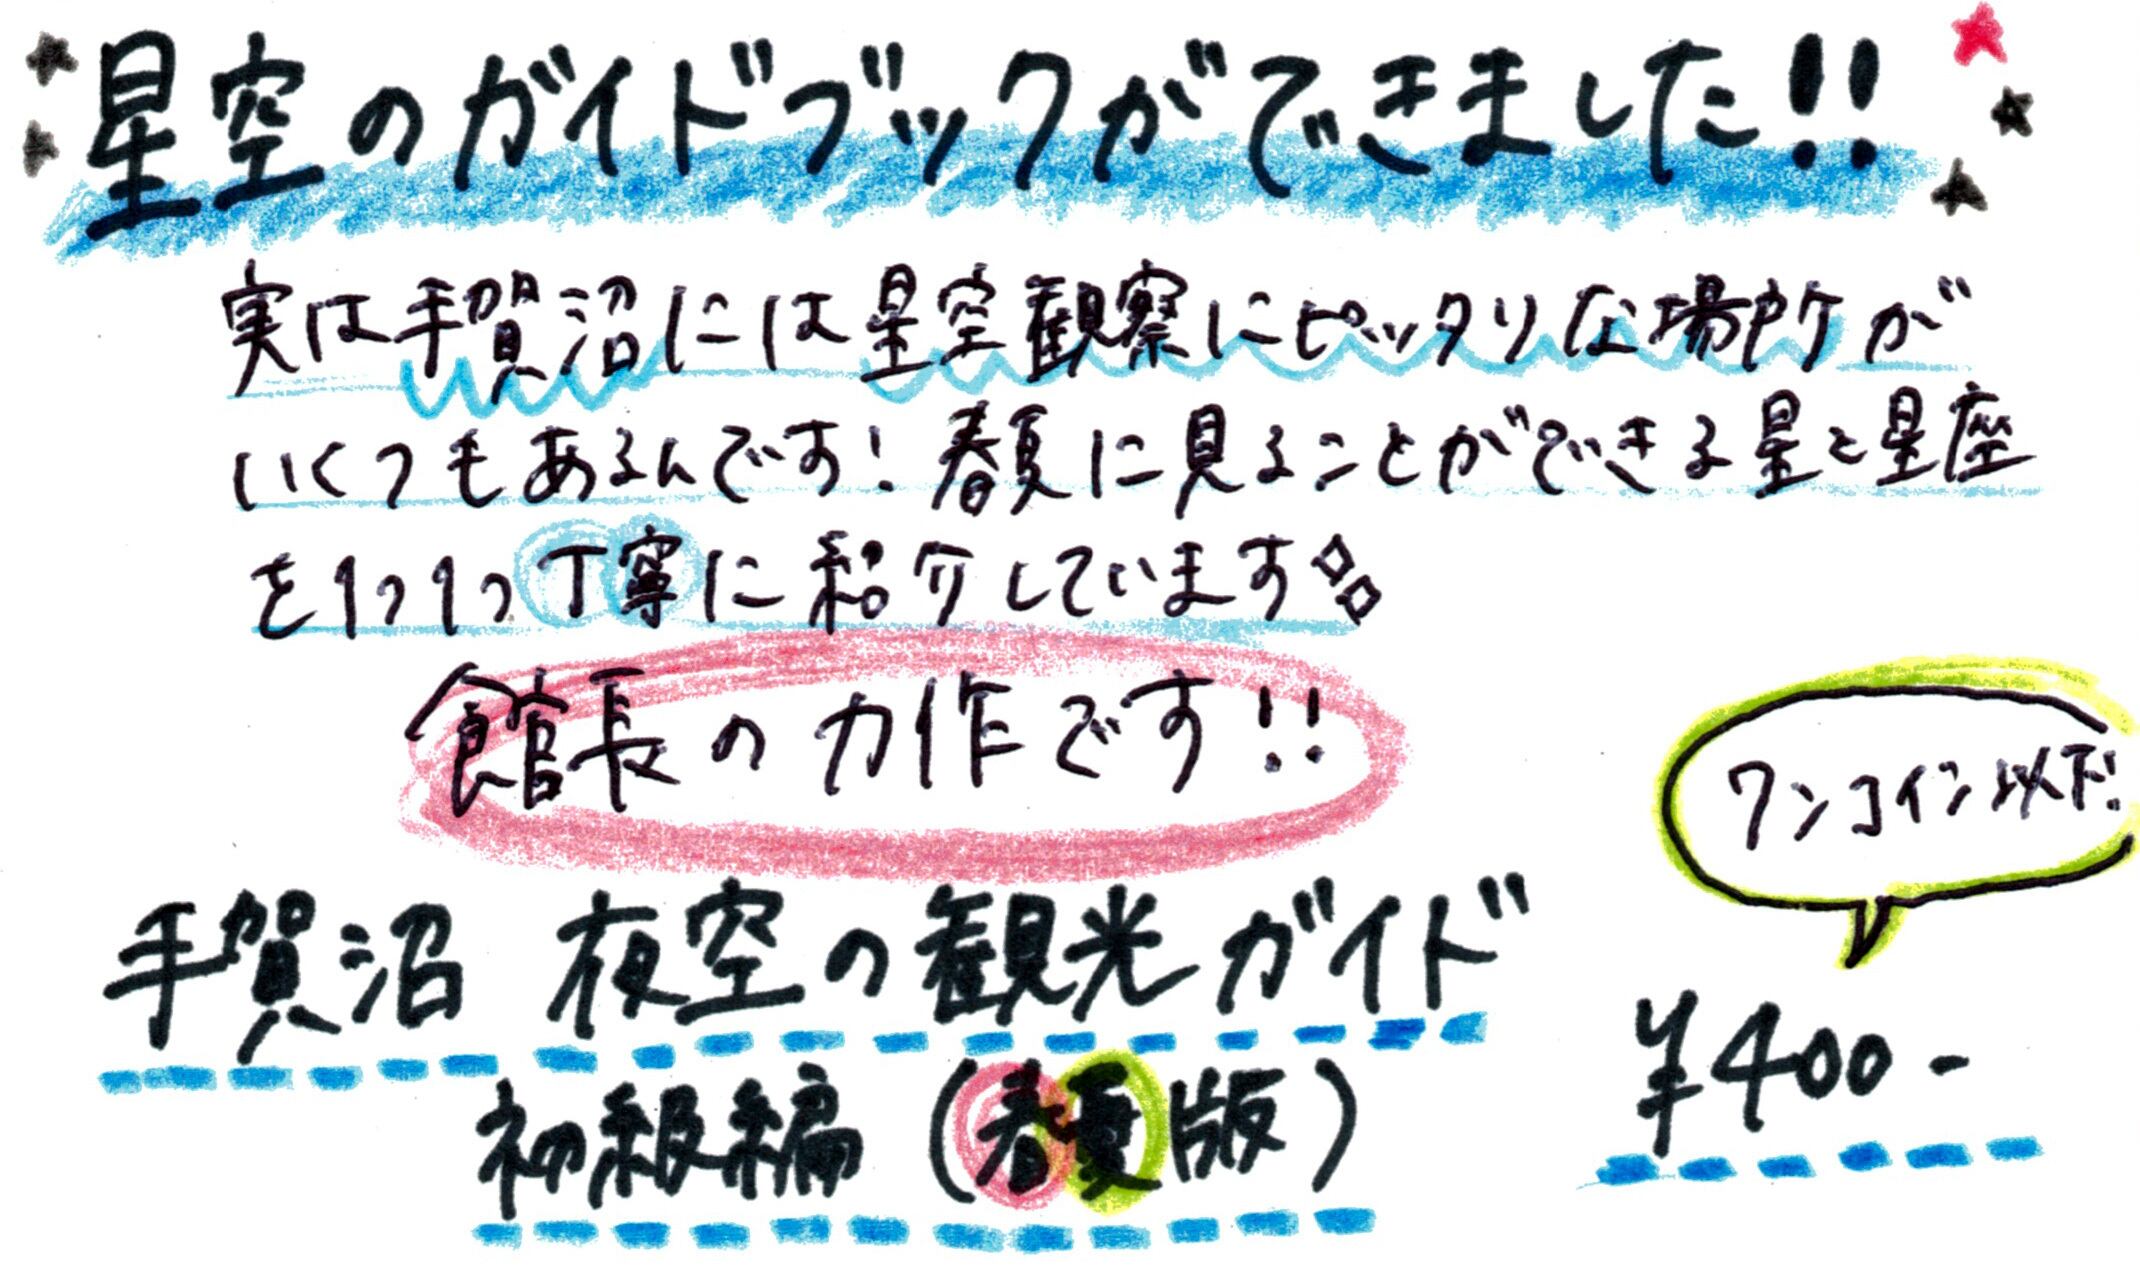 星空のガイドブックができました!!
実は手賀沼には星空観察にピッタリな場所が
いくつもあるんです! 春夏に見ることができる星と星座
を1つ1つ丁寧に紹介しています
館長の力作です!!
ワンコイン以下!
手賀沼 夜空の観光ガイド
初級編(春夏版)
¥400-